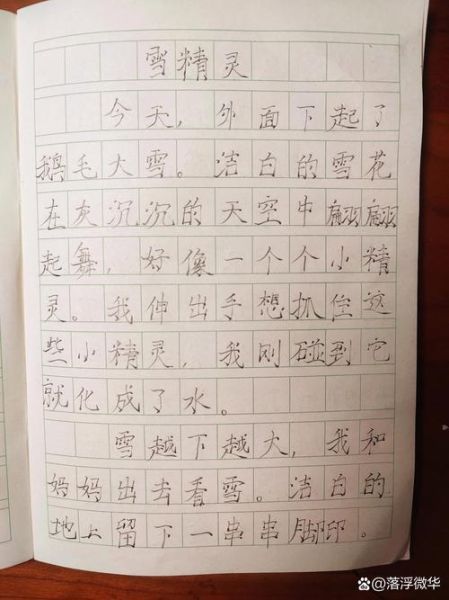 雪精灵
今天，外面下起了
鹅毛大雪。洁白的雪花
在灰沉沉的天空中翩翩
起舞，好像一个个小精
灵。我伸出手想抓住这
些小精灵，我刚碰到它
就化成了水。
雪越下越大，我和
妈妈出去看雪。洁白的
地上留下一串串脚印。
@落浮微华